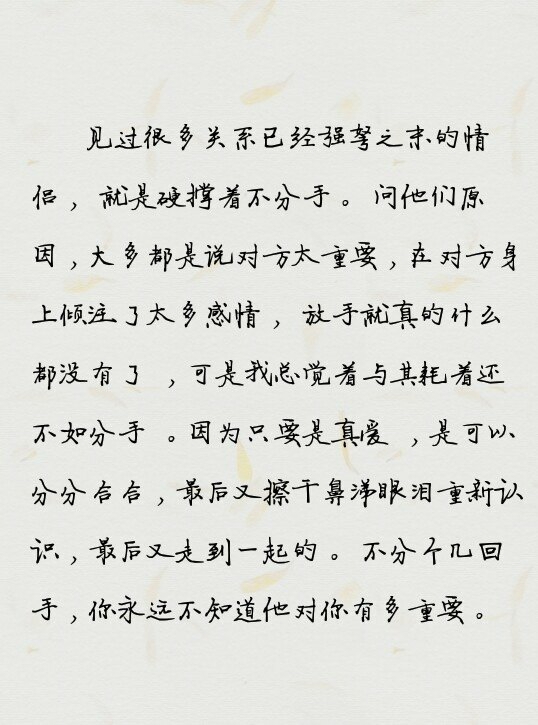 见过很多关系已经强弩之末的情
侣，就是硬撑着不分手。问他们原
因，大多都是说对方太重要，在对方身
上倾注了太多感情，放手就真的什么
都没有了，可是我总觉着与其耗着还
不如分手。因为只要是真爱，是可以
分分合合，最后又擦干鼻涕眼泪重新认
识，最后又走到一起的。不分个几回
手，你永远不知道他对你有多重要。